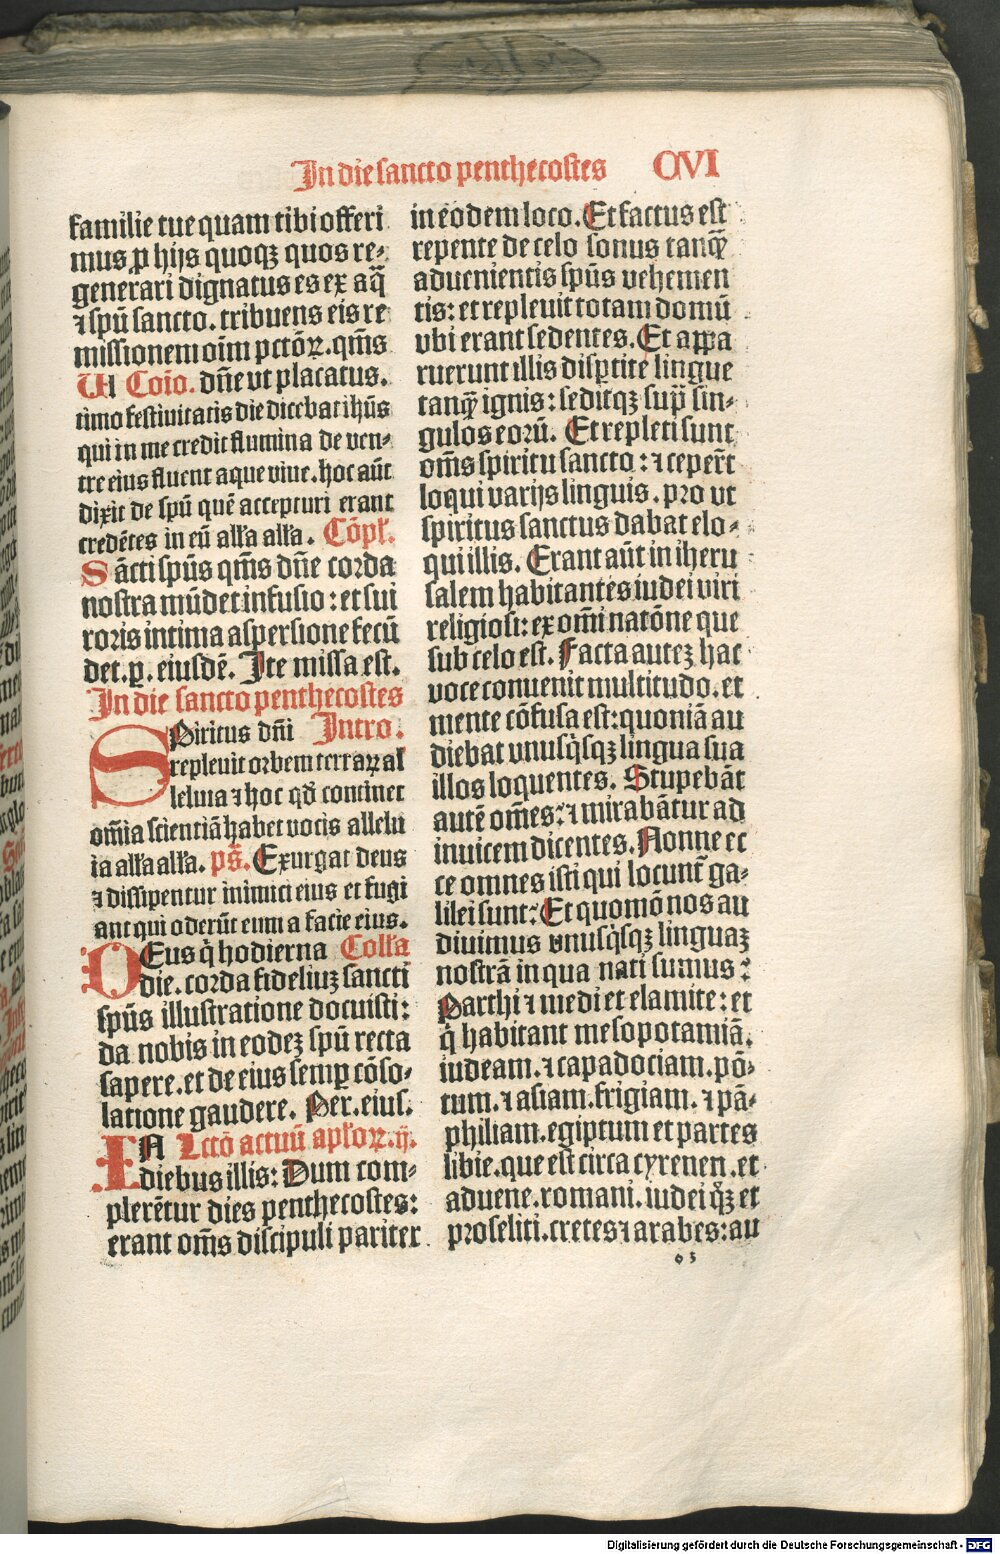 In die sancto penthecostes CVI
familie tue quam tibi offeri
mus ꝓ hijs quoqꝫ quos re⸗
generari dignatus es ex aq̄
⁊ spū sancto. tribuens eis re
missionem oīm pctōꝝ. qm̄s
Ul Coīo. dn̄e vt placatus.
timo festiuitatis die dicebat ihūs
qui in me credit flumina de ven⸗
tre eius fluent aque viue. hoc aūt
dixit de spū quē accepturi erant
credētes in eū alľa alľa. Cōpł.
Sācti spūs qm̄s dn̄e corda
nostra mūdet infusio: et sui
roris intima aspersione fecū
det. ꝑ. eiusdē. Ite missa est.
In die sancto penthecostes
SPiritus dn̄i Intro.
repleuit orbem terraꝝ al
leluia ⁊ hoc qđ continet
om̄ia scientiā habet vocis allelu
ia alľa alľa. ps̄. Exurgat deus
⁊ dissipentur inimici eius et fugi
ant qui oderūt eum a facie eius.
DEus q̇ hodierna Colľa
die. corda fideliuꝫ sancti
spūs illustratione docuisti:
da nobis in eodeꝫ spū recta
sapere. et de eius semꝑ cōso⸗
latione gaudere. Per. eius.
IN Lctō actuū apľoꝝ. ij.
diebus illis: Dum com⸗
plerētur dies penthecostes:
erant om̄s discipuli pariter
in eodem loco. Et factus est
repente de celo sonus tanqꝫ̄
aduenientis spūs vehemen
tis: et repleuit totam domū
vbi erant sedentes. Et aꝑpa
ruerunt illis disꝑtite lingue
tanqꝫ̄ ignis: seditqꝫ sup̄ sin⸗
gulos eorū. Et repleti sunt
om̄s spiritu sancto: ⁊ ceper̄t
loqui varijs linguis. pro vt
spiritus sanctus dabat elo⸗
qui illis. Erant aūt in iheru
salem habitantes iudei viri
religiosi: ex om̄i natōne que
sub celo est. Facta auteꝫ hac
voce conuenit multitudo. et
mente cōfusa est: quoniā au
diebat vnusq̇sqꝫ lingua sua
illos loquentes. Stupebāt
autē om̄es: ⁊ mirabātur ad
inuicem dicentes. Nonne ec
ce omnes isti qui locunt̄ ga⸗
lilei sunt: Et quomō nos au
diuimus vnusq̇sqꝫ linguaꝫ
nostrā in qua nati sumus:
Parthi ⁊ medi et elamite: et
q̇ habitant mesopotamiā.
iudeam. ⁊ capadociam. pō⸗
tum. ⁊ asiam. frigiam. ⁊ pā⸗
philiam. egiptum et partes
libie. que est circa cyrenen. et
aduene. romani. iudei q̊qꝫ et
proseliti. cretes ⁊ arabes: au
o 3
Digitalisierung gefördert durch die Deutsche Forschungsgemeinschaft - DFG